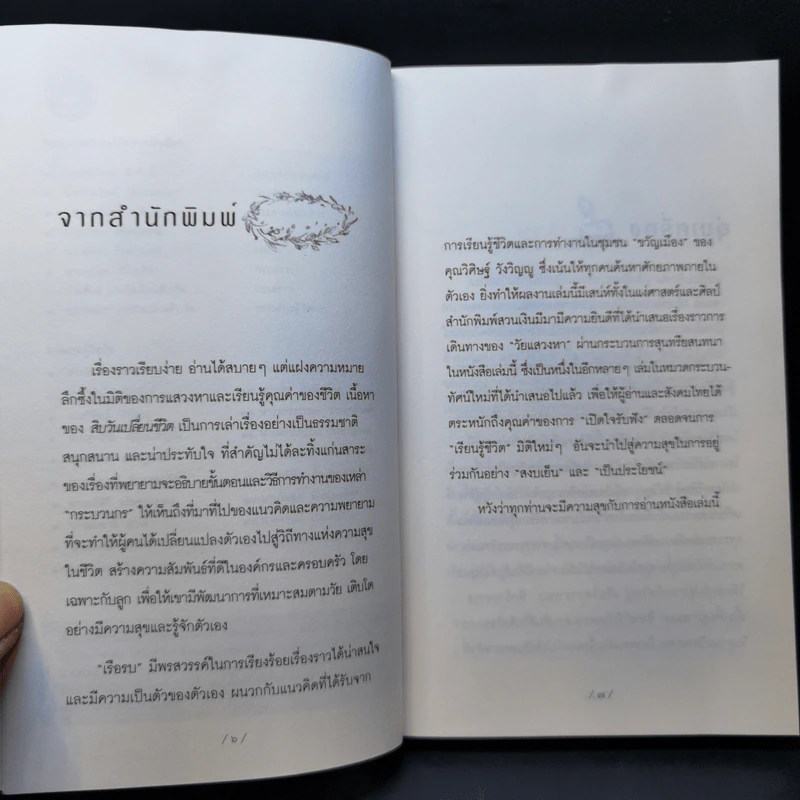 จากสำนักพิมพ์
เรื่องราวเรียบง่าย อ่านได้สบายๆ แต่แฝงความหมาย
ลึกซึ้งในมิติของการแสวงหาและเรียนรู้คุณค่าของชีวิต เนื้อหา
ของ สิบวันเปลี่ยนชีวิต เป็นการเล่าเรื่องอย่างเป็นธรรมชาติ
สนุกสนาน และน่าประทับใจ ที่สำคัญไม่ได้ละทิ้งแก่นสาระ
ของเรื่องที่พยายามจะอธิบายขั้นตอนและวิธีการทำงานของเหล่า
"กระบวนกร" ให้เห็นถึงที่มาที่ไปของแนวคิดและความพยายาม
ที่จะทำให้ผู้คนได้เปลี่ยนแปลงตัวเองไปสู่วิถีทางแห่งความสุข
ในชีวิต สร้างความสัมพันธ์ที่ดีในองค์กรและครอบครัว โดย
เฉพาะกับลูก เพื่อให้เขามีพัฒนาการที่เหมาะสมตามวัย เติบโต
อย่างมีความสุขและรู้จักตัวเอง
"เรือรบ" มีพรสวรรค์ในการเรียงร้อยเรื่องราวได้น่าสนใจ
และมีความเป็นตัวของตัวเอง ผนวกกับแนวคิดที่ได้รับจาก
/ ๖ /
การเรียนรู้ชีวิตและการทำงานในชุมชน "ขวัญเมือง" ของ
คุณวิศิษฐ์ วังวิญญู ซึ่งเน้นให้ทุกคนค้นหาศักยภาพภายใน
ตัวเอง ยิ่งทำให้ผลงานเล่มนี้มีเสน่ห์ทั้งในแง่ศาสตร์และศิลป์
สำนักพิมพ์สวนเงินมีมามีความยินดีที่ได้นำเสนอเรื่องราวการ
เดินทางของ "วัยแสวงหา" ผ่านกระบวนการสุนทรียสนทนา
ในหนังสือเล่มนี้ ซึ่งเป็นหนึ่งในอีกหลายๆ เล่มในหมวดกระบวน-
ทัศน์ใหม่ที่ได้นำเสนอไปแล้ว เพื่อให้ผู้อ่านและสังคมไทยได้
ตระหนักถึงคุณค่าของการ "เปิดใจรับฟัง" ตลอดจนการ
"เรียนรู้ชีวิต" มิติใหม่ๆ อันจะนำไปสู่ความสุขในการอยู่
ร่วมกันอย่าง "สงบเย็น" และ "เป็นประโยชน์"
หวังว่าทุกท่านจะมีความสุขกับการอ่านหนังสือเล่มนี้